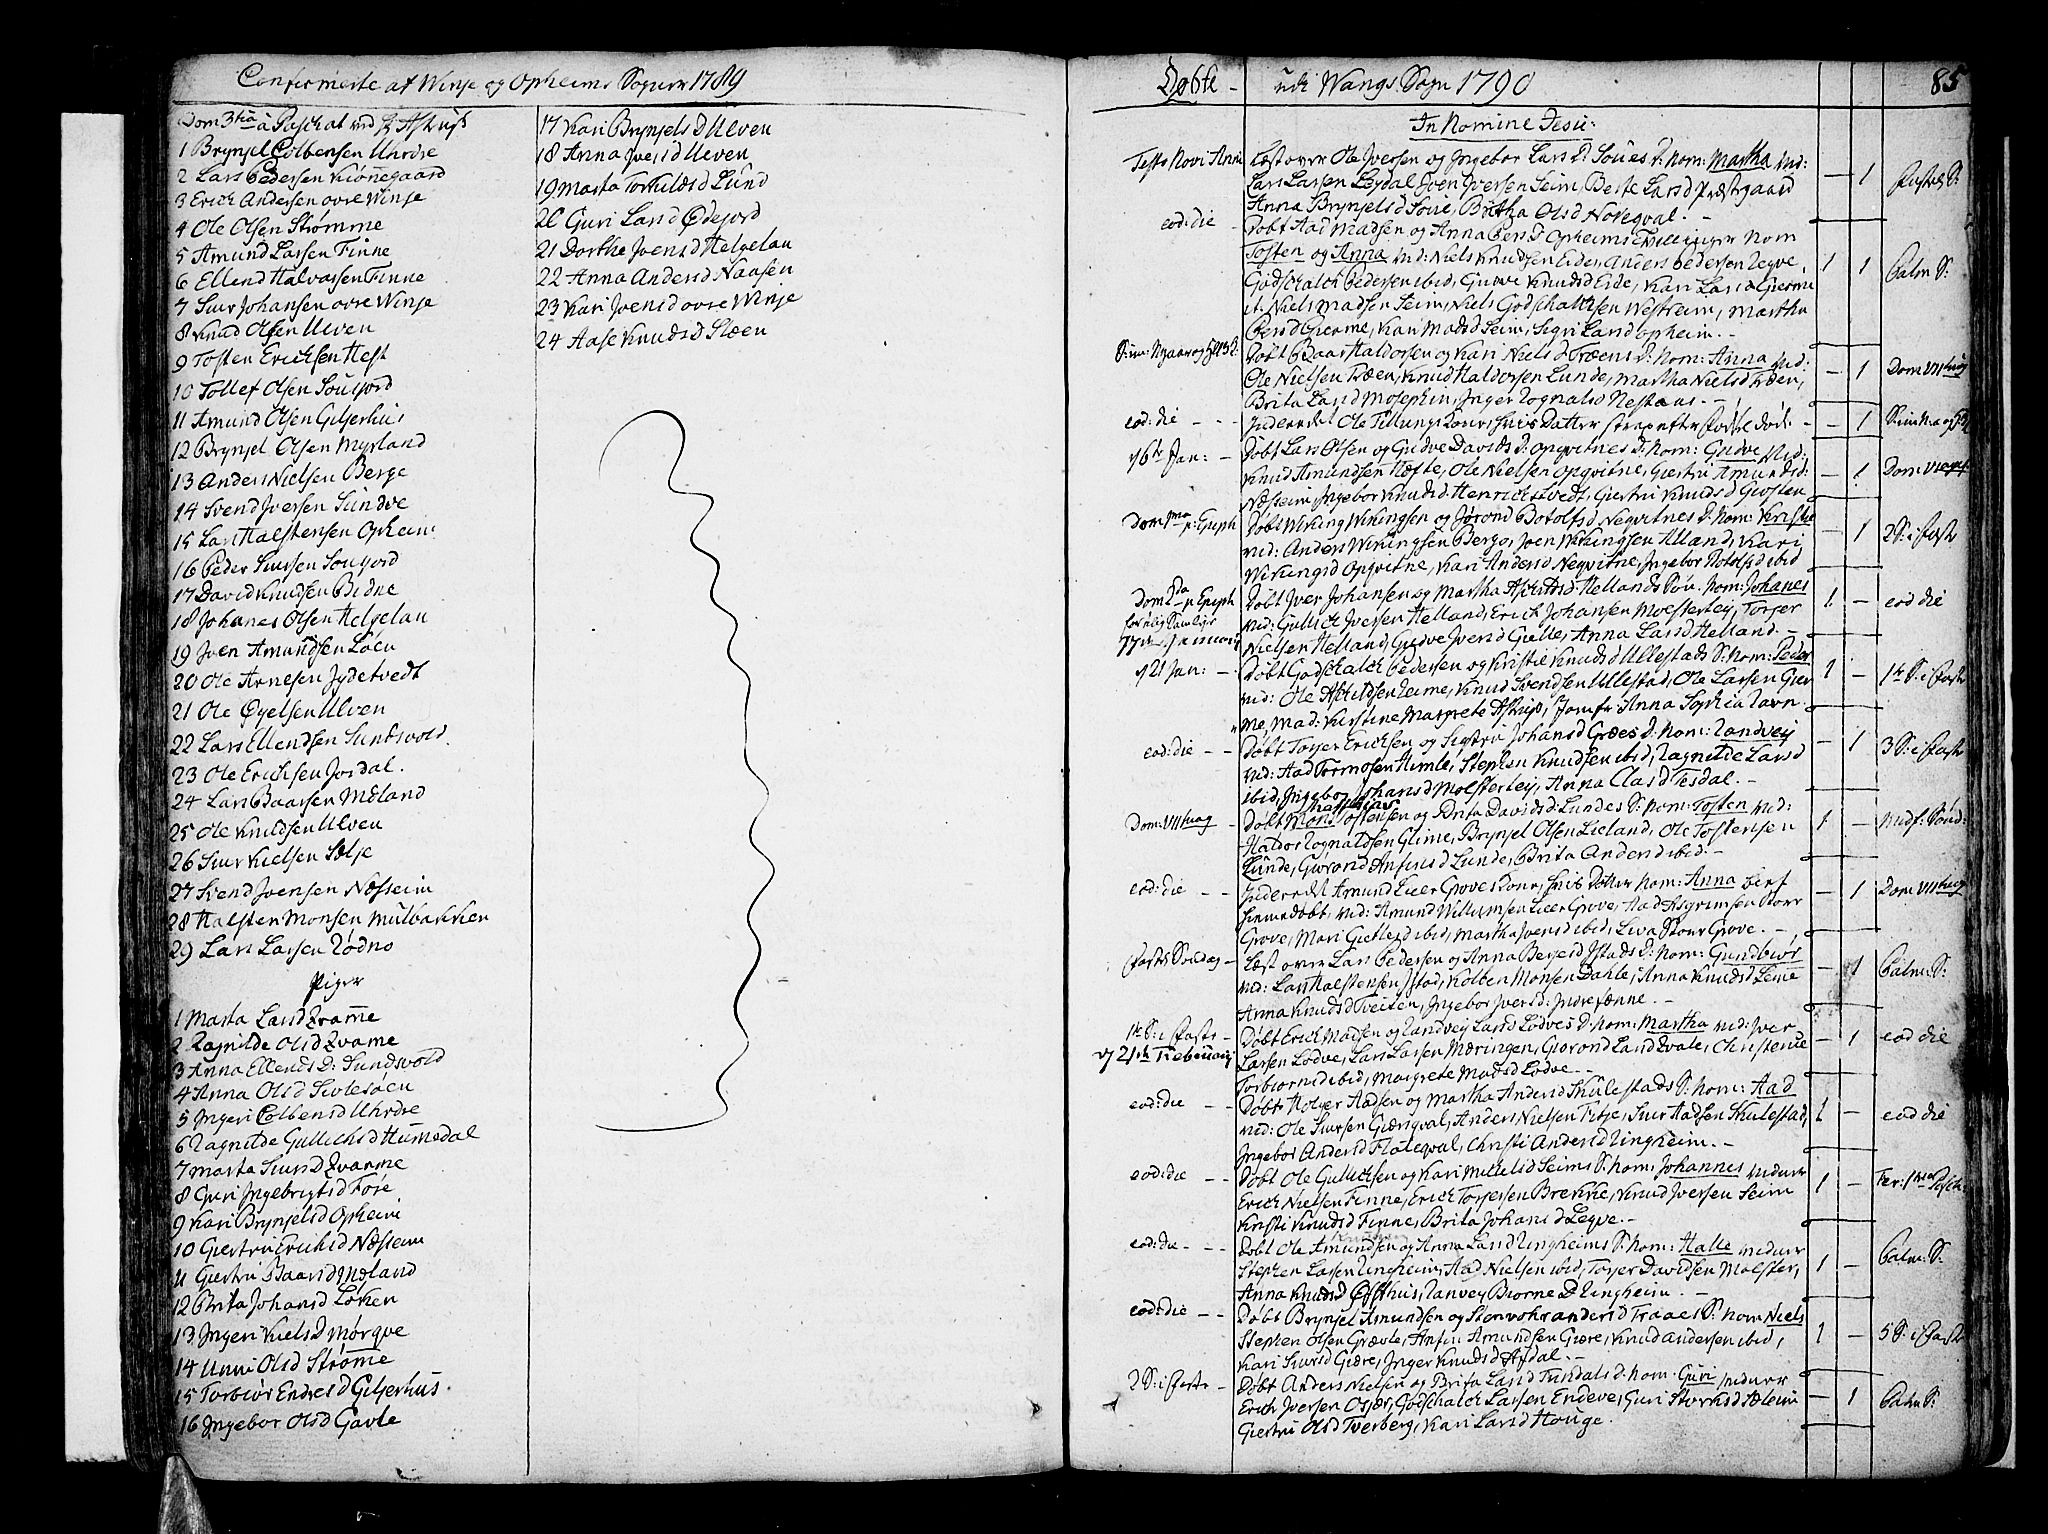 Confirmerte af Winje og Opheims Sogner 1789
Dom 3tia a Paschat ved
1 Brynjel Colbensen Uhrdre
2 Lars Pedersen Kiønegaard
3 Erich Andersen øvre Winje
4 Ole Olsen Strømme
5 Amund Larssen Finne
6 Ellend Halvarsen Finne
7 Siur Johansen øvre Winje
8 Knud Olsen Ulven
9 Tosten Erichsen Hest
10 Tollef Olsen
11 Amund Olsen Gilserhus
12 Brynjel Olsen Myrland
13 Anders Nielsen Berge
14 Svend Iversen Sundve
15 Lars Halstensen Opheim
16 Peder Siursen
17 David Knudsen Bidne
18 Johanes Olsen Helgelan
19 Joen Amundsen Løen
20 Ole Arnesen Jydetvedt
21 Ole Øyelsen Ulven
22 Lars Ellendsen Sundsvold
23 Ole Erichsen Jordal.
24 Lars Baarsen Møland
25 Ole Knudsen Ulven
26 Siur Kielsen Selje
27 Svend Joensen Næsseim
28 Halsten Monsen Mulbakken
29 Lars Larsen Rødno
Piger
1 Marta LarsD Qvamme
2 Ragnilde OlsD Qvame
3 Anna EllendsD: Sundsvold
4 Anna OlsD
5 Ingeri ColbensD Uhrdre
6 Ragnilde GullichsD Humedal
7 Marta SiursD Qvamme
8 Guri IngebrigtsD Føre
9 Kari BrynjelsD Opheim
10 Giertru ErichsD Næsseim
11 Giertru BaarsD Møland
12 Brita JohansD Løken
13 Ingeri KielsD Mørqve
14 Unni OlsD Strøme
15 Torbiør EndresD Gilserhus.
16 Ingebor OlsD Gavle
17 Kari BrynjelsD Ulven
18 Anna IversD Ulven
19 Marta TorkildsD Lund
20 Guri LarsD Ødejord
21 Dorthe JoensD Helgelan
22 Anna AndersD Naasen
23 Kari JoensD øvre Winje
24 Aase KnudsD Slæen
Døbte udi Wangs Sogn 1790
85
In Nomine Jesu:
Festo Novi Anni Læst over Ole Iversen og Ingebor LarsD: Soues D: nom: Martha vid:
Lars Larsen Løgdal, Joen Iversen Seim, Berte LarsD Præstgaard — 1
Anna BrynjelsD Soue, Britha OlsD Nøreqval. —
eod: die — Døbt Aad Madsen og Anna PersD Opheims Tvillinger nom
Tosten og Anna vid: Niels Knudsen Eide, Anders Pedersen Legve, 1 1 Palm S:
Godschalch Pedersen ibid, Guove KnudsD Eide, Kari LarsD Gierme
it: Niels Madsen Seim, Niels Godschalksen Westreim, Martha
PersD Gierme, Kari MadsD Seim, Sigri LarsD Opheim. —
Døbt Baar Haldorsen og Kari NielsD Træens D: nom: Anna vid:
Ole Nielsen Træen, Knud Haldorsen Lunde, Martha NielsD Træen, — 1
Brita LarsD Mosephin, Inger RognalsD Nestaas. —
eod: die — Ole Tillungs Kone, hvis Datter strax efter døde. — 1
d/6te Jan: — Døbt Lars Olsen og Gudve DavidsD: Opqvitnes D: nom: Gudve vid:
Knud Amundsen Hæfte, Ole Nielsen Opqvitne, Giertru AmundsD: — 1
Næsseim, Ingebor KnudsD: Henrichstvedt, Giertru KnudsD
Dom 1ma p: Epiph Døbt Wiking Wikingsen og Jørond BotolfsD Neqvitnes D: nom: Kristie
vid: Anders Wikingsen Berge, Joen Wikingsen Alland, Kari — 1 2 S: i Faste
WikingsD Opqvitne, Kari AndersD Neqvitne, Ingebor BotolfsD ibid
Dom 2da p: Epiph Døbt Iver Johansen og Martha Hellands Søn nom: Johanes 1 — eod die
vid: Gullich Iversen Helland, Erich Johansen Moesterley, Torjer
Nielsen Helland, Gudve IversD Gielle, Anna LarsD Helland. —
d/21 Jan: — Døbt Godschalch Pedersen og Kristie KnudsD Ullestads S: nom: Peder 1 — 1te S: i Faste
vid: Ole Knud Svendsen Ullestad, Ole Larsen Gier
me, Mad: Kirstine Margrete Jomfr Anna Sophia
eod: die — — Døbt Torjer Erichsen og Sigtru JohansD Græes D: nom: Randvey — 1 3 S: i Faste
vid: Aad Tormosen Himle, Stephen Knudsen ibid, Ragnilde LarsD
ibid, Ingebor JohansD Molsterley, Anna ClasD Tesdal. —
Døbt Tostensen og Brita DavidsD: Lundes S: nom: Tosten vid: 1 — Midf: Sønd:
Haldor Rognaldsen Glime, Brynjel Olsen Lieland, Ole Tostensen
Lunde, Gurorid AnfinsD Lunde, Brita AndersD ibid. —
eod: die — — Amund Lier Grove Kone, hvis Dotter nom: Anna — 1
hiemedøbt, vid: Amund Willumsen Leer Grove, Aad Asgrimsen Stoer
Grove, Mari GietlesD ibid, Martha JoensD ibid, Liva Stour Grove. —
Faste Søndag — Læst over Lars Pedersen og Anna D: nom: Gundbiør — 1 Palm: S:
vid: Lars Halstensen Istad, Kolben Monsen Dahle, Anna KnudsD
Anna KnudsD Tveiten, Ingebor IversD: Indrefænne. —
1te S: i Faste — Døbt Erich Madsen og Randvey LarsD Lødves D: nom: Martha vid: Iver — 1 eod die
d/21de Februarij Larsen Lødve, Lars Larsen Møringen, Gurond LarsD Qvale, Christense
TorbiornsD ibid, Margrete MadsD Lødve —
eod: die — — Døbt Holger Aadsen og Martha AndersD Skulestads S: nom: Aad 1 — eod die
vid: Ole Siursen Giærsqval, Anders Nielsen Titje, Siur Aadsen Skulestad,
Ingebor AndersD Flateqval, Christi AndersD Ringheim. —
eod: die — — Døbt Ole Gullichsen og Kari MichelsD Seims S: nom: Johannes vidner 1 —
Erich Nielsen Finne, Erich Torjersen Brekke, Knud Iversen Seim
Kristi KnudsD Finne, Brita JohansD Legve. —
eod: die — — Døbt Ole Amundsen og Anna LarsD Ringheims S: nom: Halle vidner
Stephen Larsen Ringheim, Aad Nielsen ibid, Torjer Davidsen Molster, 1 — Palm: S:
Anna KnudsD Øfsthus, Ranvey BiorneD Ringheim. —
eod: die — — Døbt Brynjel Amundsen og AndersD Traaes S: nom Niels
Stephen Olsen Grævle, Anfin Amundsen Giære, Knud Andersen ibid, 1 — 5 S: i Faste
Kari SiursD Giære, Inger KnudsD Afdal. —
2 S: i Faste — Døbt Anders Nielsen og Brita LarsD Tundals D: nom: Guri, vidner
Erich Iversen Osjær, Godschalch Larsen Endeve, Guri StorksD Sæleim — 1 Palm S:
Giertru OlsD Tverberg, Kari LarsD Houge.